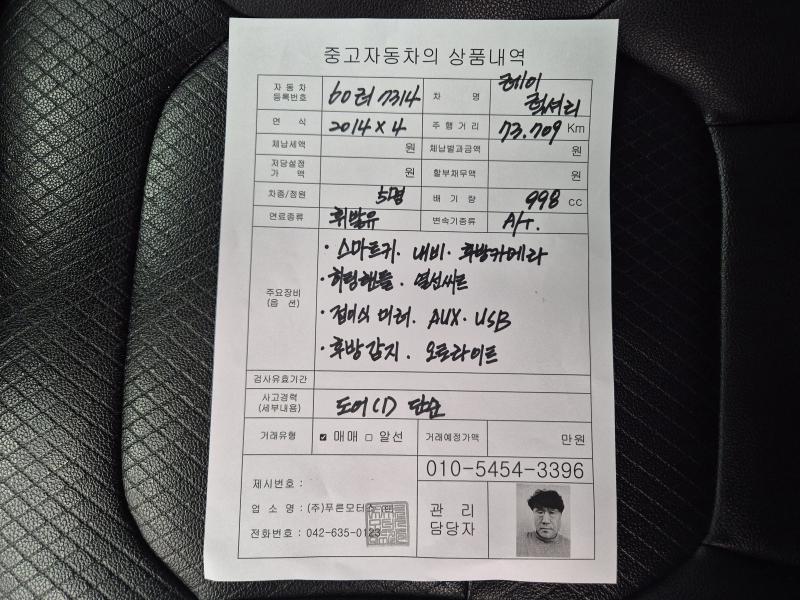 중고자동차의 상품내역
자동차 등록번호 60러 7314 차 명 레이 럭셔리
연 식 2014 x 4 주행거리 73.709 Km
체납세액 원 체납벌과금액 원
저당설정 가 액 원 할부채무액 원
차종/정원 5명 배 기 량 998 cc
연료종류 휘발유 변속기종류 A/T.
주요장비 (옵 션)
· 스마트키. 내비. 후방카메라
· 히팅핸들. 열선씨트
· 접이식 미러. AUX. USB
· 후방감지. 오토라이트
검사유효기간
사고경력 (세부내용) 도어(1) 단순
거래유형 ☑ 매매 □ 알선 거래예정가액 만원
010-5454-3396
제시번호 :
업 소 명 : (주)푸른모터스
전화번호 : 042-635-0123
관 리
담당자